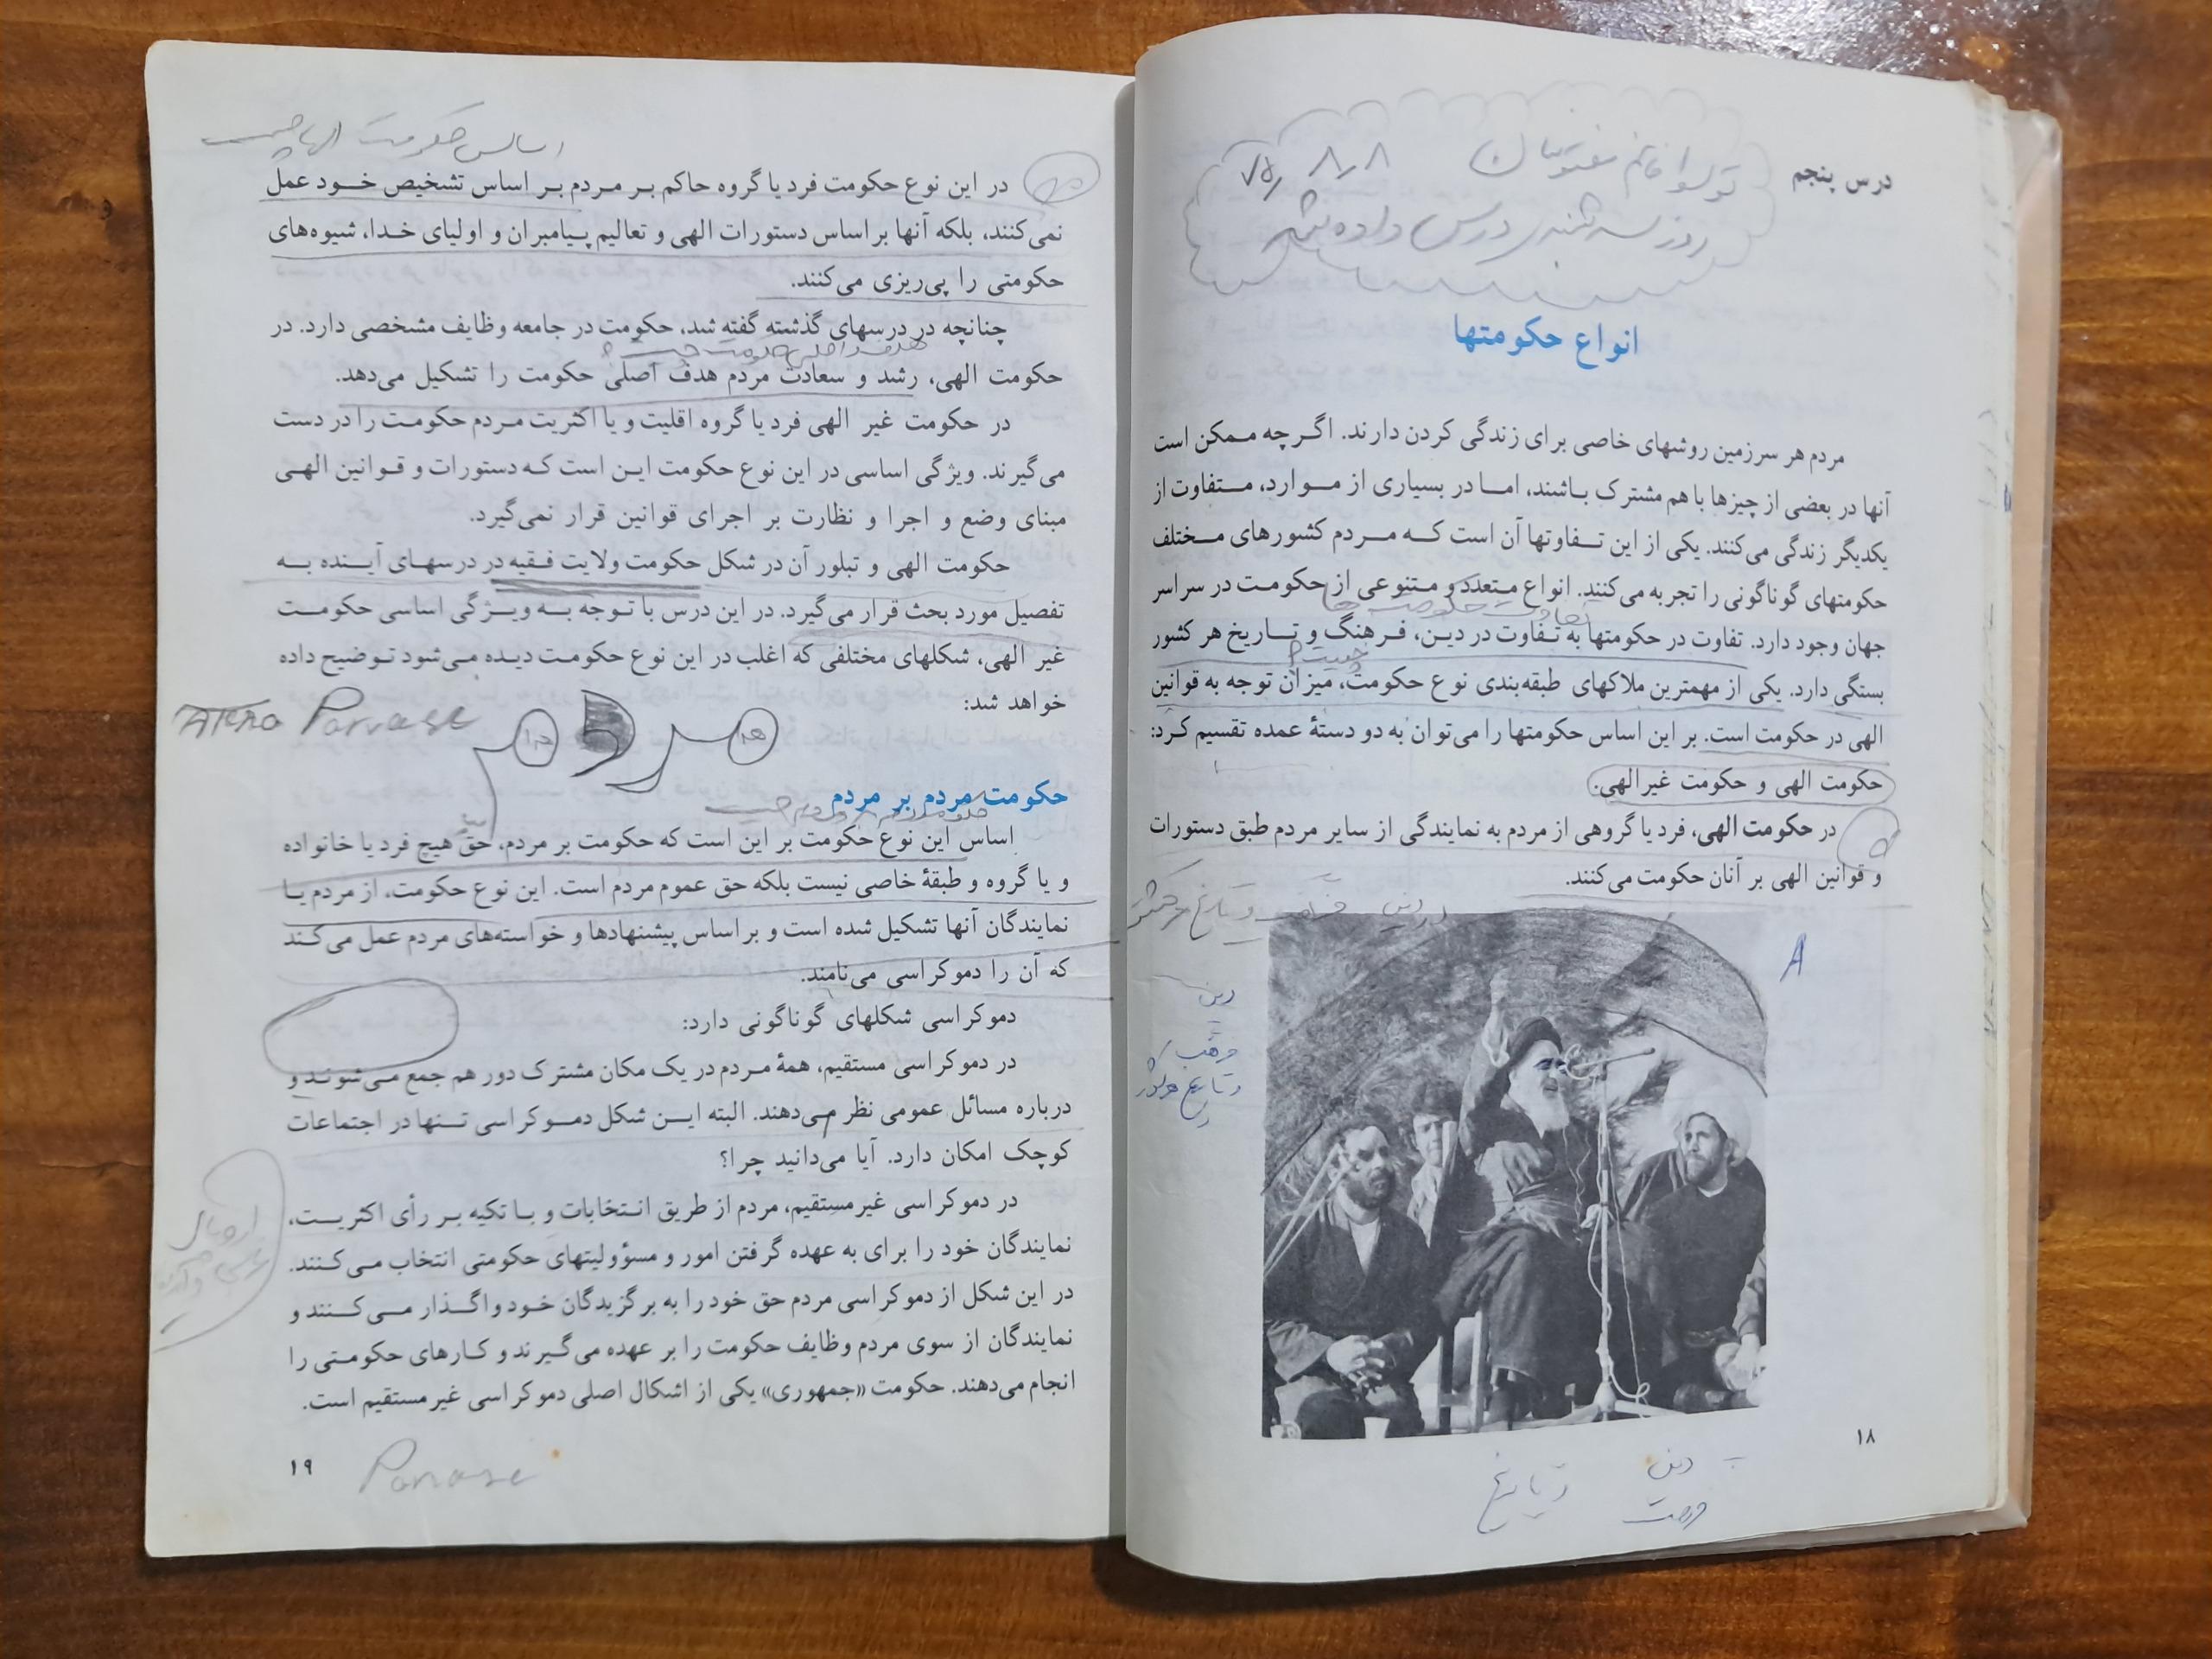 درس پنجم
توسط خانم
۷۵/۸/۸
روز سه شنبه درس داده شد
انواع حکومتها
مردم هر سرزمین روشهای خاصی برای زندگی کردن دارند. اگرچه ممکن است
آنها در بعضی از چیزها با هم مشترک باشند، اما در بسیاری از موارد، متفاوت از
یکدیگر زندگی می‌کنند. یکی از این تفاوتها آن است که مردم کشورهای مختلف
حکومتهای گوناگونی را تجربه می‌کنند. انواع متعدد و متنوعی از حکومت در سراسر
جهان وجود دارد. تفاوت در حکومتها به تفاوت در دین، فرهنگ و تاریخ هر کشور
بستگی دارد. یکی از مهمترین ملاکهای طبقه‌بندی نوع حکومت، میزان توجه به قوانین
الهی در حکومت است. بر این اساس حکومتها را می‌توان به دو دستهٔ عمده تقسیم کرد:
حکومت الهی و حکومت غیرالهی.
در حکومت الهی، فرد یا گروهی از مردم به نمایندگی از سایر مردم طبق دستورات
و قوانین الهی بر آنان حکومت می‌کنند.
A
دین
دین
تاریخ
۱۸
اساس حکومت الهی چیست
در این نوع حکومت فرد یا گروه حاکم بر مردم بر اساس تشخیص خود عمل
نمی‌کنند، بلکه آنها بر اساس دستورات الهی و تعالیم پیامبران و اولیای خدا، شیوه‌های
حکومتی را پی‌ریزی می‌کنند.
چنانچه در درسهای گذشته گفته شد، حکومت در جامعه وظایف مشخصی دارد. در
هدف اصلی حکومت چیست؟
حکومت الهی، رشد و سعادت مردم هدف اصلی حکومت را تشکیل می‌دهد.
در حکومت غیر الهی فرد یا گروه اقلیت و یا اکثریت مردم حکومت را در دست
می‌گیرند. ویژگی اساسی در این نوع حکومت این است که دستورات و قوانین الهی
مبنای وضع و اجرا و نظارت بر اجرای قوانین قرار نمی‌گیرد.
حکومت الهی و تبلور آن در شکل حکومت ولایت فقیه در درسهای آینده به
تفصیل مورد بحث قرار می‌گیرد. در این درس با توجه به ویژگی اساسی حکومت
غیر الهی، شکلهای مختلفی که اغلب در این نوع حکومت دیده می‌شود توضیح داده
خواهد شد:
مردم
حکومت مردم بر مردم
اساس این نوع حکومت بر این است که حکومت بر مردم، حق هیچ فرد یا خانواده
و یا گروه و طبقهٔ خاصی نیست بلکه حق عموم مردم است. این نوع حکومت، از مردم یا
نمایندگان آنها تشکیل شده است و بر اساس پیشنهادها و خواسته‌های مردم عمل می‌کند
که آن را دموکراسی می‌نامند.
دموکراسی شکلهای گوناگونی دارد:
در دموکراسی مستقیم، همهٔ مردم در یک مکان مشترک دور هم جمع می‌شوند و
درباره مسائل عمومی نظر می‌دهند. البته این شکل دموکراسی تنها در اجتماعات
کوچک امکان دارد. آیا می‌دانید چرا؟
در دموکراسی غیرمستقیم، مردم از طریق انتخابات و با تکیه بر رأی اکثریت،
نمایندگان خود را برای به عهده گرفتن امور و مسؤولیتهای حکومتی انتخاب می‌کنند.
در این شکل از دموکراسی مردم حق خود را به برگزیدگان خود واگذار می‌کنند و
نمایندگان از سوی مردم وظایف حکومت را بر عهده می‌گیرند و کارهای حکومتی را
انجام می‌دهند. حکومت «جمهوری» یکی از اشکال اصلی دموکراسی غیرمستقیم است.
۱۹